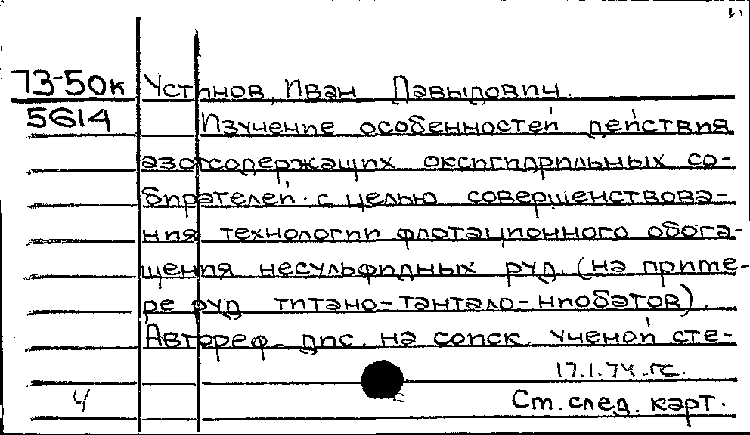 73-50к Устинов, Иван Давыдович.
5614 Изучение особенностей действия
азотсодержащих оксигидрильных со-
бирателей с целью совершенствова-
ния технологии флотационного обога-
щения несульфидных руд. (на приме-
ре руд титано-тантало-ниобатов).
Автореф. дис. на соиск. ученой сте-
17.1.74.гс.
4 Ст. след. карт.